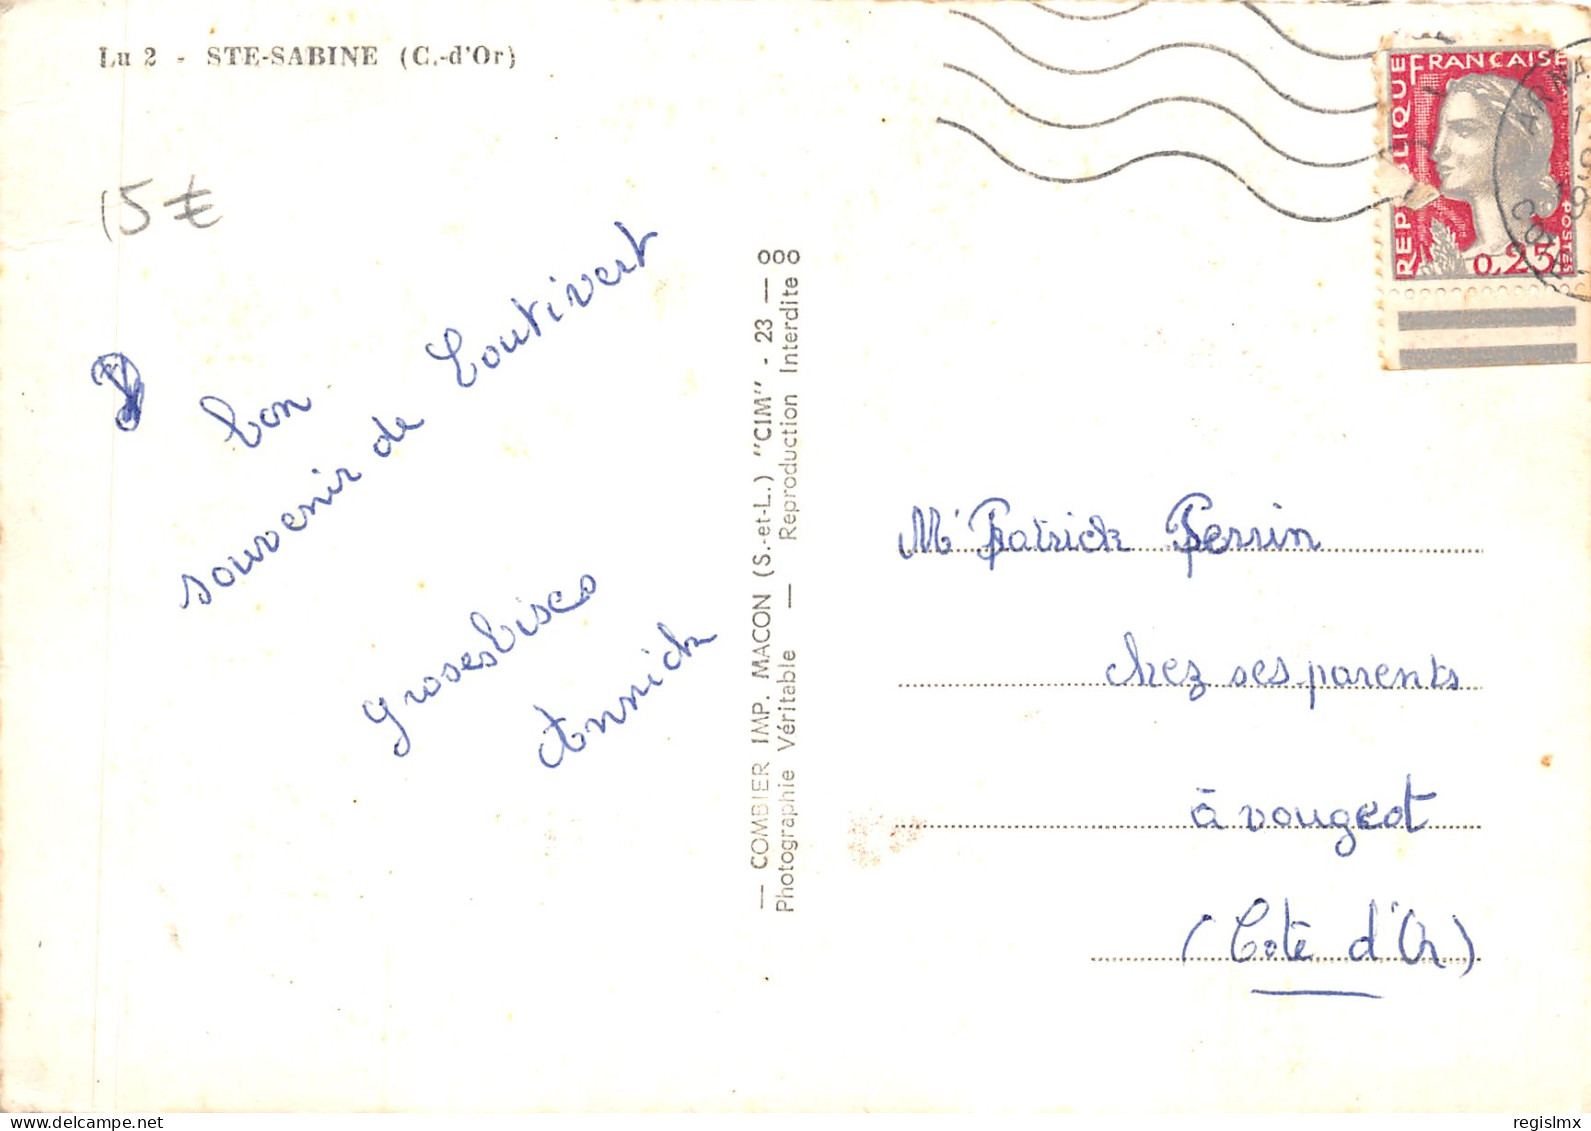 Lu 2 - STE-SABINE (C.-d'Or)
15 €
bon
souvenir de Coutivert
groses bises
Annick
— COMBIER IMP. MACON (S.-et-L.) "CIM" - 23 — 000
Photographie Véritable — Reproduction Interdite
RÉPUBLIQUE
FRANÇAISE
POSTES
0,25
Mr Patrick Perrin
chez ses parents
à vougeot
(Côte d'Or)
delcampe.net
regislmx